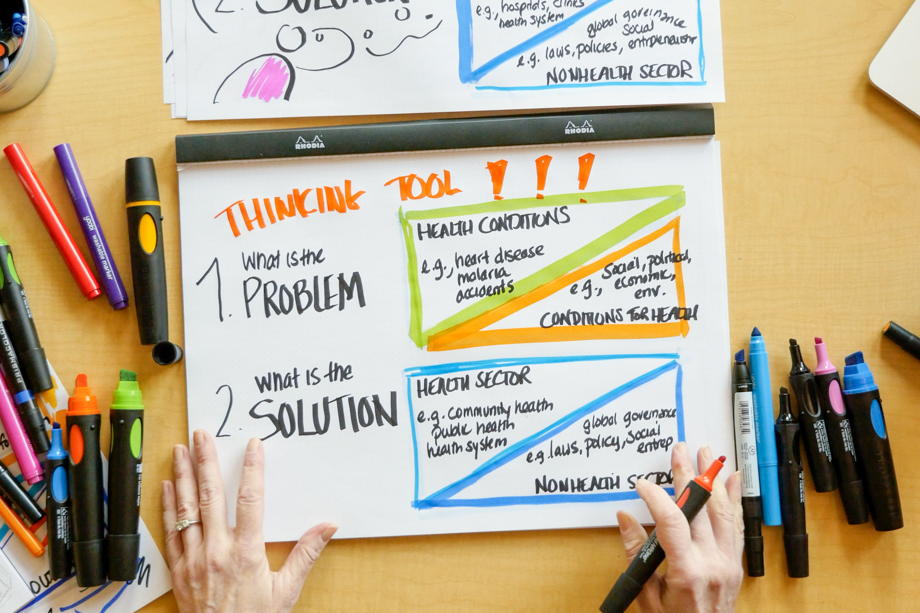 2. SOLUTION
e.g., hospitals, clinics
health system
global governance
social
e.g. laws, policies, entrepreneurship
NONHEALTH SECTOR
RHODIA
RHODIA
THINKING TOOL !!!
1. What is the
PROBLEM
HEALTH CONDITIONS
e.g., heart disease
malaria
accidents
Social, political,
e.g., economic,
env.
CONDITIONS FOR HEALTH
2. What is the
SOLUTION
HEALTH SECTOR
e.g. community health
public health
health system
global governance
e.g. laws, policy, social
entrep
NONHEALTH SECTOR
PRISMACOLOR